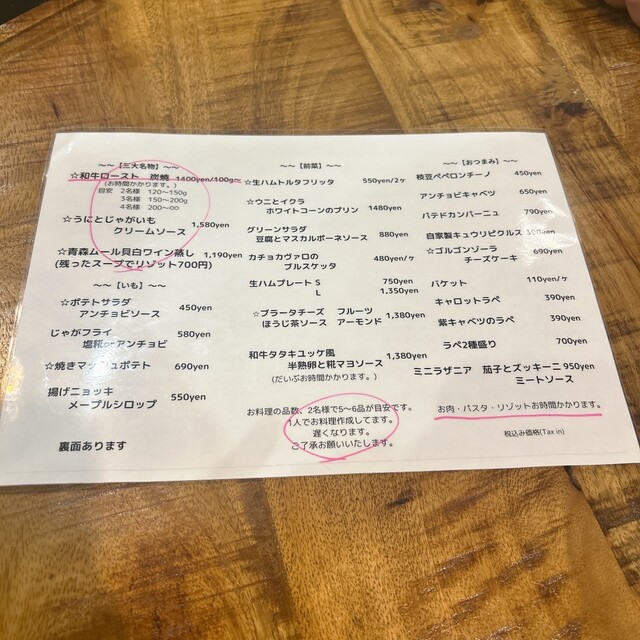 ～～【三大名物】～～
☆和牛ロースト 炭焼 1400yen/100g～
(お時間かかります。)
目安 2名様 120～150g
3名様 150～200g
4名様 200～∞
☆うにとじゃがいも
クリームソース 1,580yen
☆青森ムール貝白ワイン蒸し 1,190yen
(残ったスープでリゾット700円)
～～【いも】～～
☆ポテトサラダ
アンチョビソース 450yen
じゃがフライ 580yen
塩糀orアンチョビ
☆焼きマッシュポテト 690yen
揚げニョッキ
メープルシロップ 550yen
裏面あります
～～【前菜】～～
☆生ハムトルタフリッタ 550yen/2ヶ
☆ウニとイクラ
ホワイトコーンのプリン 1480yen
グリーンサラダ
豆腐とマスカルポーネソース 880yen
カチョカヴァロの 480yen/ヶ
ブルスケッタ
生ハムプレート S 750yen
L 1,350yen
☆ブラータチーズ フルーツ
ほうじ茶ソース アーモンド 1,380yen
和牛タタキユッケ風 1,380yen
半熟卵と糀マヨソース
(だいぶお時間かかります。)
お料理の品数、2名様で5～6品が目安です。
1人でお料理作成してます。
遅くなります。
ご了承お願いいたします。
～～【おつまみ】～～
枝豆ペペロンチーノ 450yen
アンチョビキャベツ 650yen
パテドカンパーニュ 790yen
自家製キュウリピクルス
☆ゴルゴンゾーラ 690yen
チーズケーキ
バケット 110yen/ヶ
キャロットラペ 390yen
紫キャベツのラペ 390yen
ラペ2種盛り 700yen
ミニラザニア 茄子とズッキーニ 950yen
ミートソース
お肉・パスタ・リゾットお時間かかります。
税込み価格(Tax in)